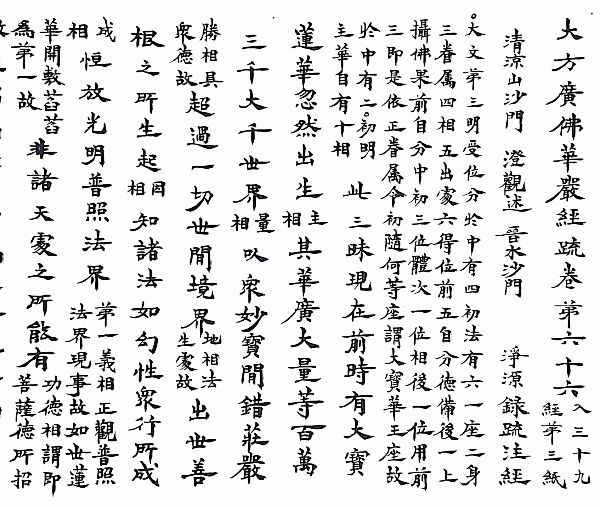 大方廣佛華嚴經䟽卷第六十六入三十九
經第三紙
清涼山沙門 澄觀述 晉水沙門 淨源錄䟽注經
大文第三明受位分於中有四初法有六一座二身
三眷属四相五出處六得位前五自分德備後一上
攝佛果前自分中初三位體次一位相後一位用前
三即是依正眷属今初隨何等座謂大寶華王座故
於中有二初明
主華自有十相
此三昧現在前時有大寶
蓮華忽然出生主
相其華廣大量等百萬
三千大千世界量
相以衆妙寶間錯莊嚴
勝相具
衆德故超過一切世間境界地相法
生處故出世善
根之所生起因
相知諸法如幻性衆行所成
成
相恒放光明普照法界第一義相正觀普照
法界現事故如世蓮
華開敷萏萏
為第一故非諸天處之所能有功德相謂即
菩薩德所招